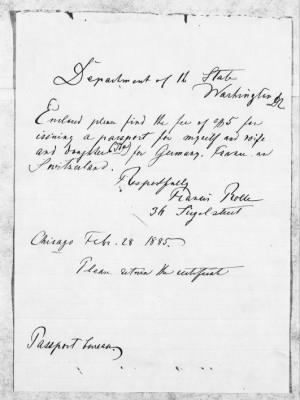 Department of th State
Washington DC
Enclosed please find the fee of $5 for
issuing a passport for myself and wife
and daughter for Germany, France an
Switzerland.
Respectfully
Francis
36 Sigel street
Chicago Feb. 28 1885.
Please return the certificate
Passport bureau